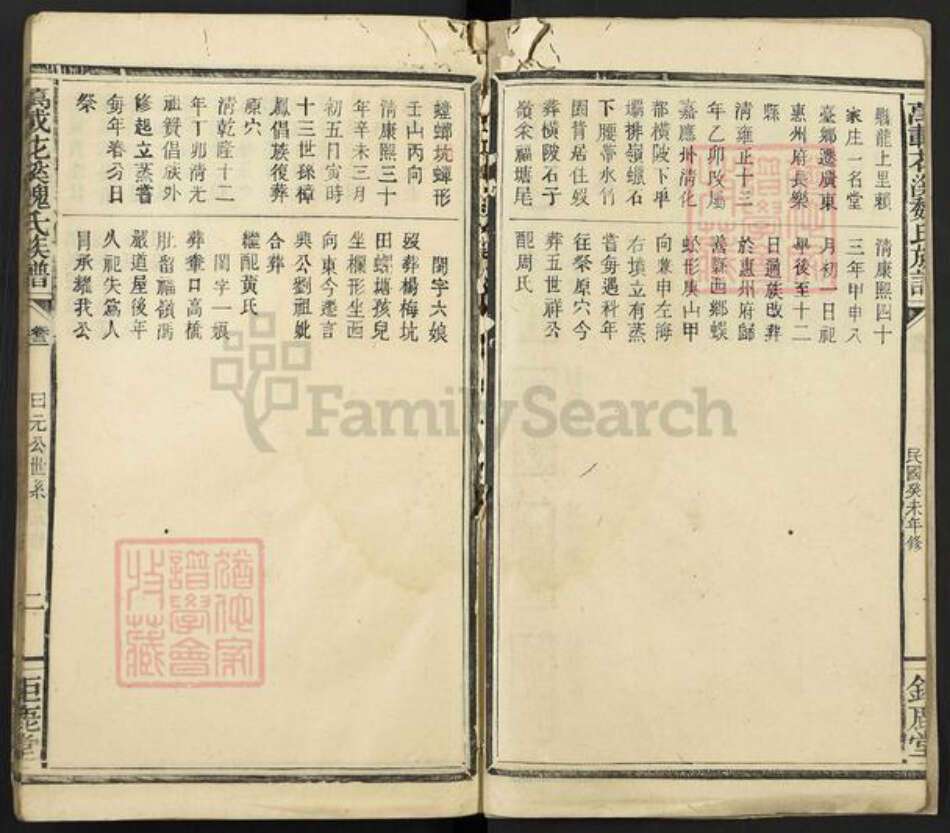 龍上里賴
家庄一名堂
臺鄉遷廣東
惠州府長樂
縣
清雍正十三
年乙卯改屬
嘉應州清化
都橫陂下畢
壩排嶺蠟石
下腰帶水竹
園背居住歿
葬橫陂石子
嶺氽福塘尾
清康熙四十
三年甲申八
月初一日祀
學後至十二
日過族改葬
於惠州府歸
善縣西鄉蜈
蚣形庚山甲
向兼申左海
右墳立有蒸
嘗每遇科年
往祭原穴今
葬五世祥公
配周氏
民國癸未年修
鉅鹿堂
螳螂坑蟬形
壬山丙向
清康熙三十
年辛未三月
初五日寅時
十三世採樟
鳳倡族復葬
原穴
清乾隆十二
年丁卯清元
祖贊倡族外
修起立蒸嘗
每年春分日
祭
閏字六娘
歿葬楊梅坑
田螺塘孩兒
坐欄形坐西
向東今遷言
興公劉祖妣
合葬
繼配黃氏
閏字一娘
葬畬口高橋
肚留福嶺馮
嚴道屋後年
久祀失爲人
冒承耀我公
魏氏族譜
卷三
曰元公世系
二
鉅鹿堂
FamilySearch